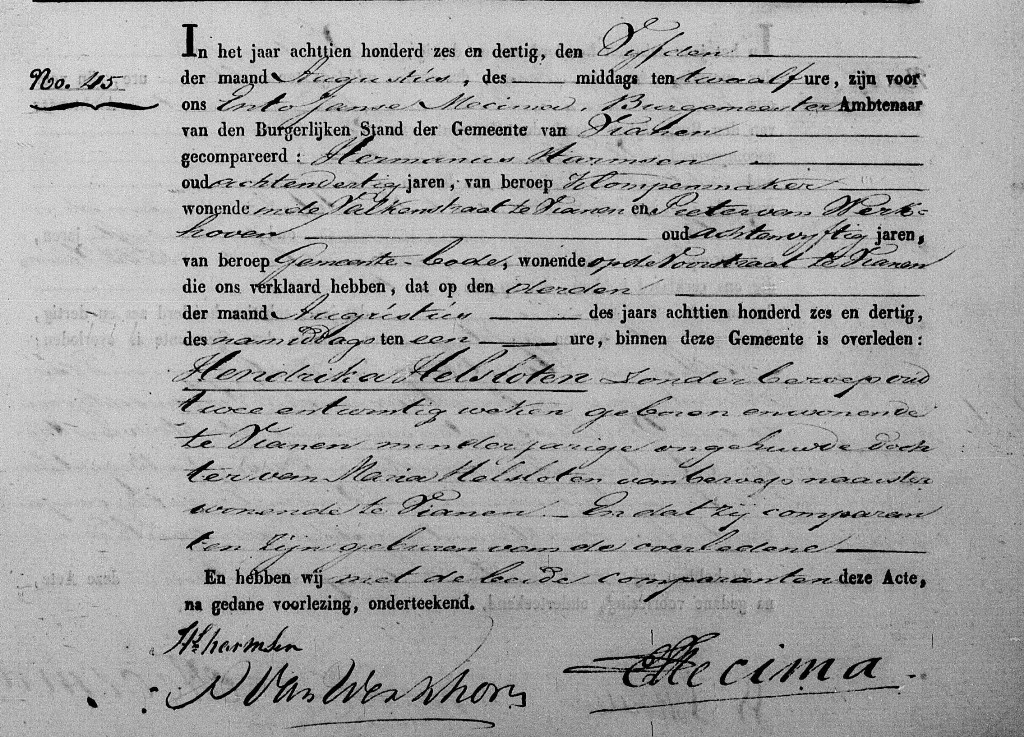 In het jaar achttien honderd zes en dertig, den Vyfden
No. 45
der maand Augustus, des middags ten twaalf ure, zijn voor
ons Ento Janse Mecima, Burgemeester Ambtenaar
van den Burgerlijken Stand der Gemeente van Vianen
gecompareerd: Hermanus Harmsen
oud achtendertig jaren, van beroep Klompenmaker
wonende in de Valkenstraat te Vianen en Pieter van Werk-
hoven oud achtenvyftig jaren,
van beroep Gemeente-bode, wonende op de Voorstraat te Vianen
die ons verklaard hebben, dat op den derden
der maand Augustus des jaars achttien honderd zes en dertig,
des namiddags ten een ure, binnen deze Gemeente is overleden:
Hendrika Helsloten zonder beroep oud
twee entwintig weken geboren en wonende
te Vianen minderjarige ongehuwde doch
ter van Maria Helsloten van beroep naaister
wonende te Vianen. En dat zij comparan
ten zijn geburen van de overledene
En hebben wij met de beide comparanten deze Acte,
na gedane voorlezing, onderteekend.
Hs harmsen
P Van Werkhoven
EJMecima